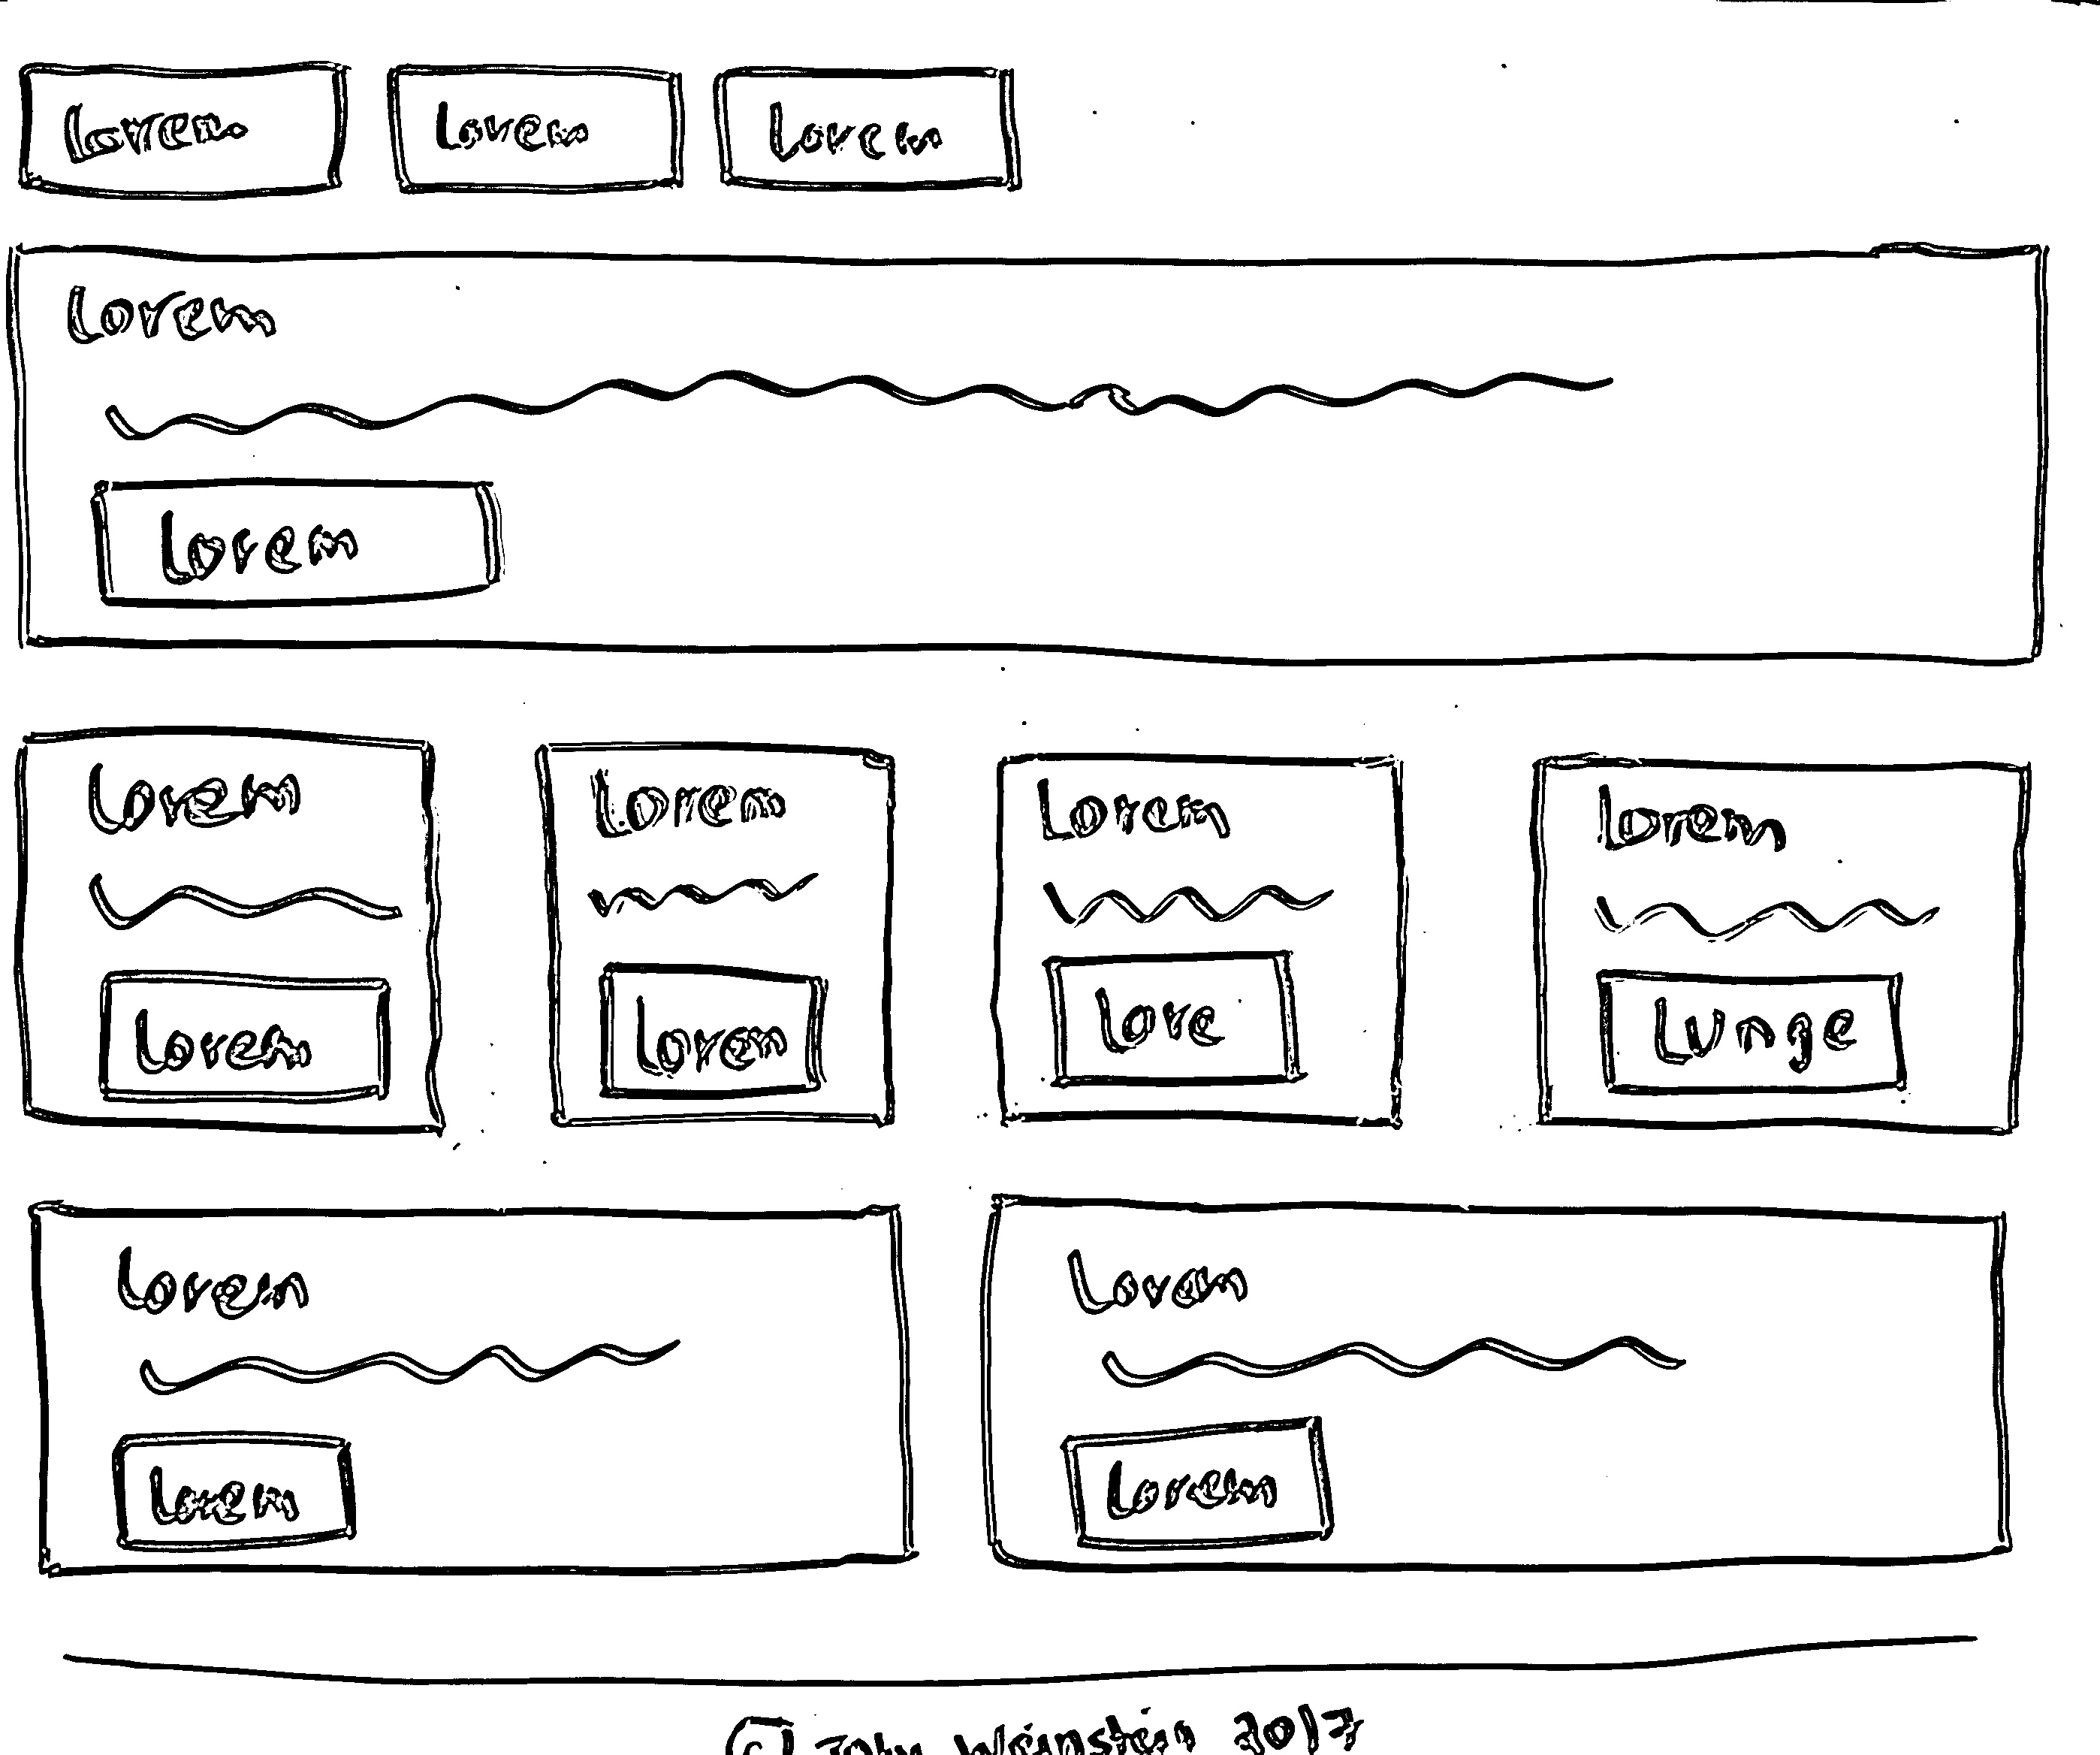 Lorem Lorem Lorem
Lorem
Lorem
Lorem Lorem Lorem Lorem
Lorem Lorem Lore Lunge
Lorem Loren
Lorem Lorem
© John Weinstein 2017